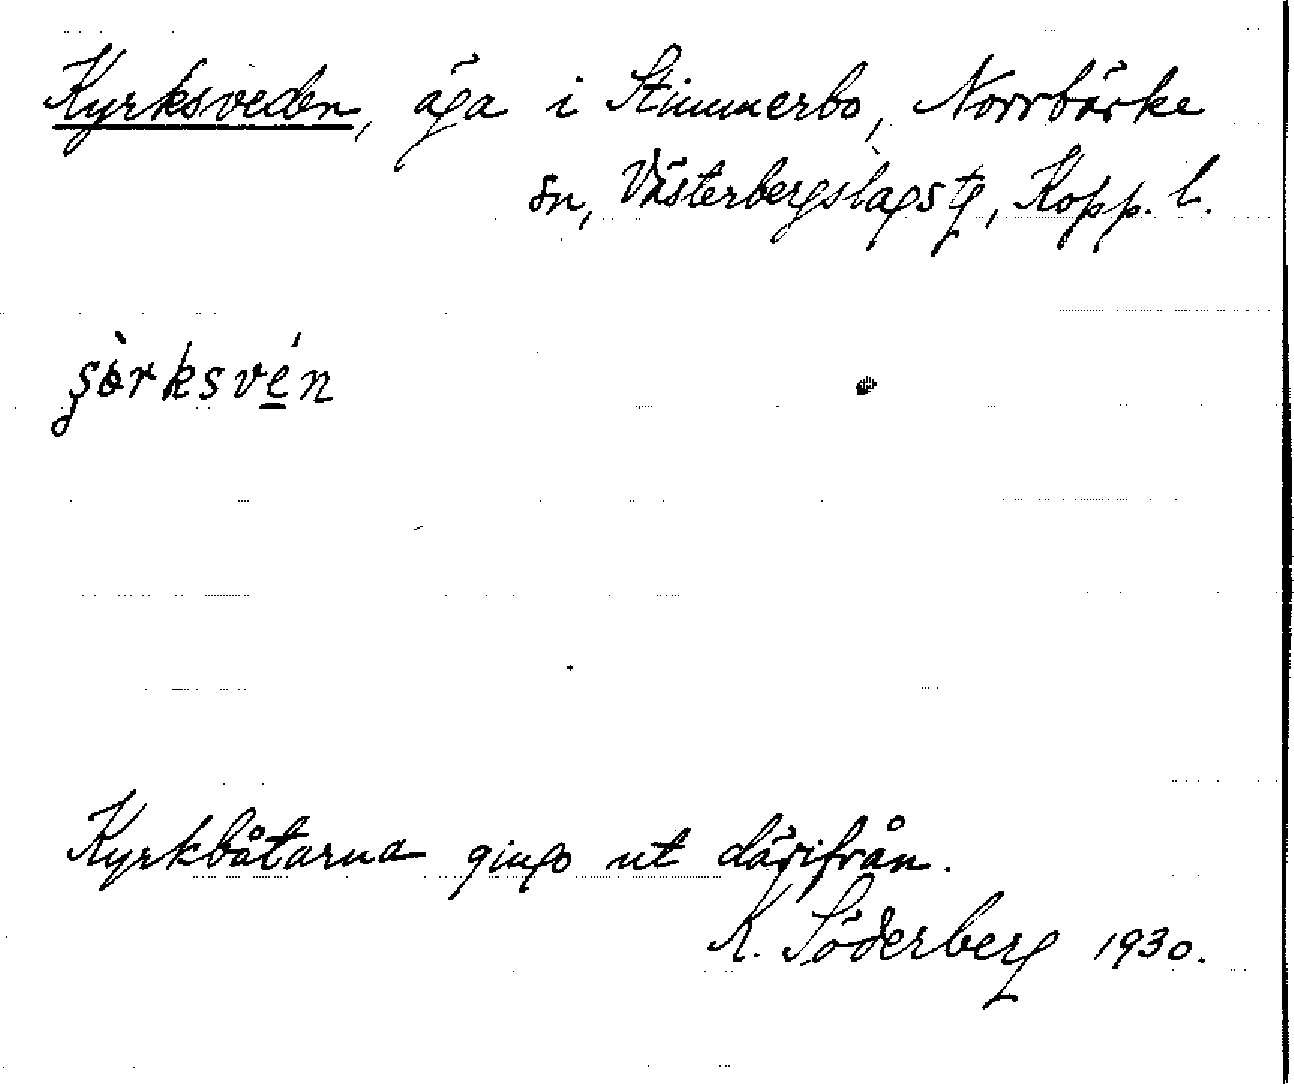 Kyrksveden, äga i Stimmerbo, Norrbärke
sn, Västerbergslags tg, Kopp. l.
Kyrkbåtarna gingo ut därifrån.
K. Söderberg 1930.